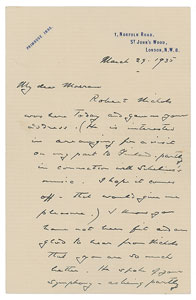 PRIMROSE 1805.
7, NORFOLK ROAD,
ST JOHN'S WOOD,
LONDON, N.W.8.
March 29. 1935
My dear Moeran
Robert Nichols
was here today and gave me your
address. (He is interested
in arranging for a visit
on my part to Finland, partly
in connection with Sibelius's
music. I hope it comes
off. That would give me
pleasure.) I know you
have not been well and am
glad to hear from Nichols
that you are so much
better. He spoke of your
Symphony - as being partly